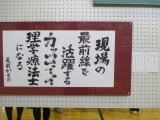 現場の
最前線で
活躍する
カッコイイ
理学療法士
になる。